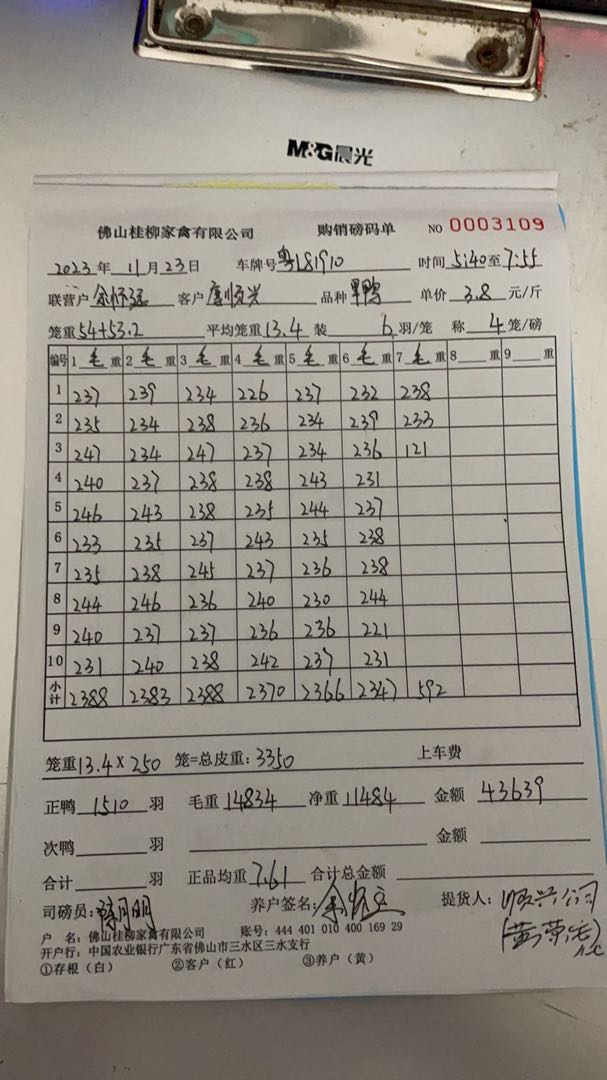 M&G晨光
佛山桂柳家禽有限公司 购销磅码单 NO 0003109
2023年 11月 23日 车牌号 粤181910 时间 5:40至 7:55
联营户 余怀远 客户 品种 单价 3.8 元/斤
笼重 54+53.2 平均笼重 13.4 装 6 羽/笼 称 4 笼/磅
编号 1 毛 重 2 毛 重 3 毛 重 4 毛 重 5 毛 重 6 毛 重 7 毛 重 8 重 9 重
1 237 239 234 226 237 232 238
2 235 234 238 236 234 239 233
3 247 234 247 237 234 236 121
4 240 237 238 238 243 231
5 246 243 238 235 244 237
6 233 235 237 243 235 238
7 235 238 245 237 236 238
8 244 246 236 240 230 244
9 240 237 237 236 236 221
10 231 240 238 242 237 231
小计 2388 2383 2388 2370 2366 2347 592
笼重 13.4 × 250 笼=总皮重: 3350 上车费
正鸭 1510 羽 毛重 14834 净重 11484 金额 43639
次鸭 羽 金额
合计 羽 正品均重 7.61 合计总金额
司磅员: 陈月明 养户签名: 提货人: 顺兴公司
户 名: 佛山桂柳家禽有限公司 账号: 444 401 010 400 169 29
开户行: 中国农业银行广东省佛山市三水区三水支行
①存根（白） ②客户（红） ③养户（黄）